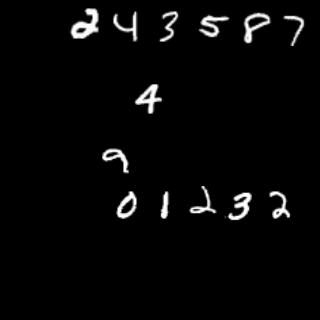 243587
4
9
01232